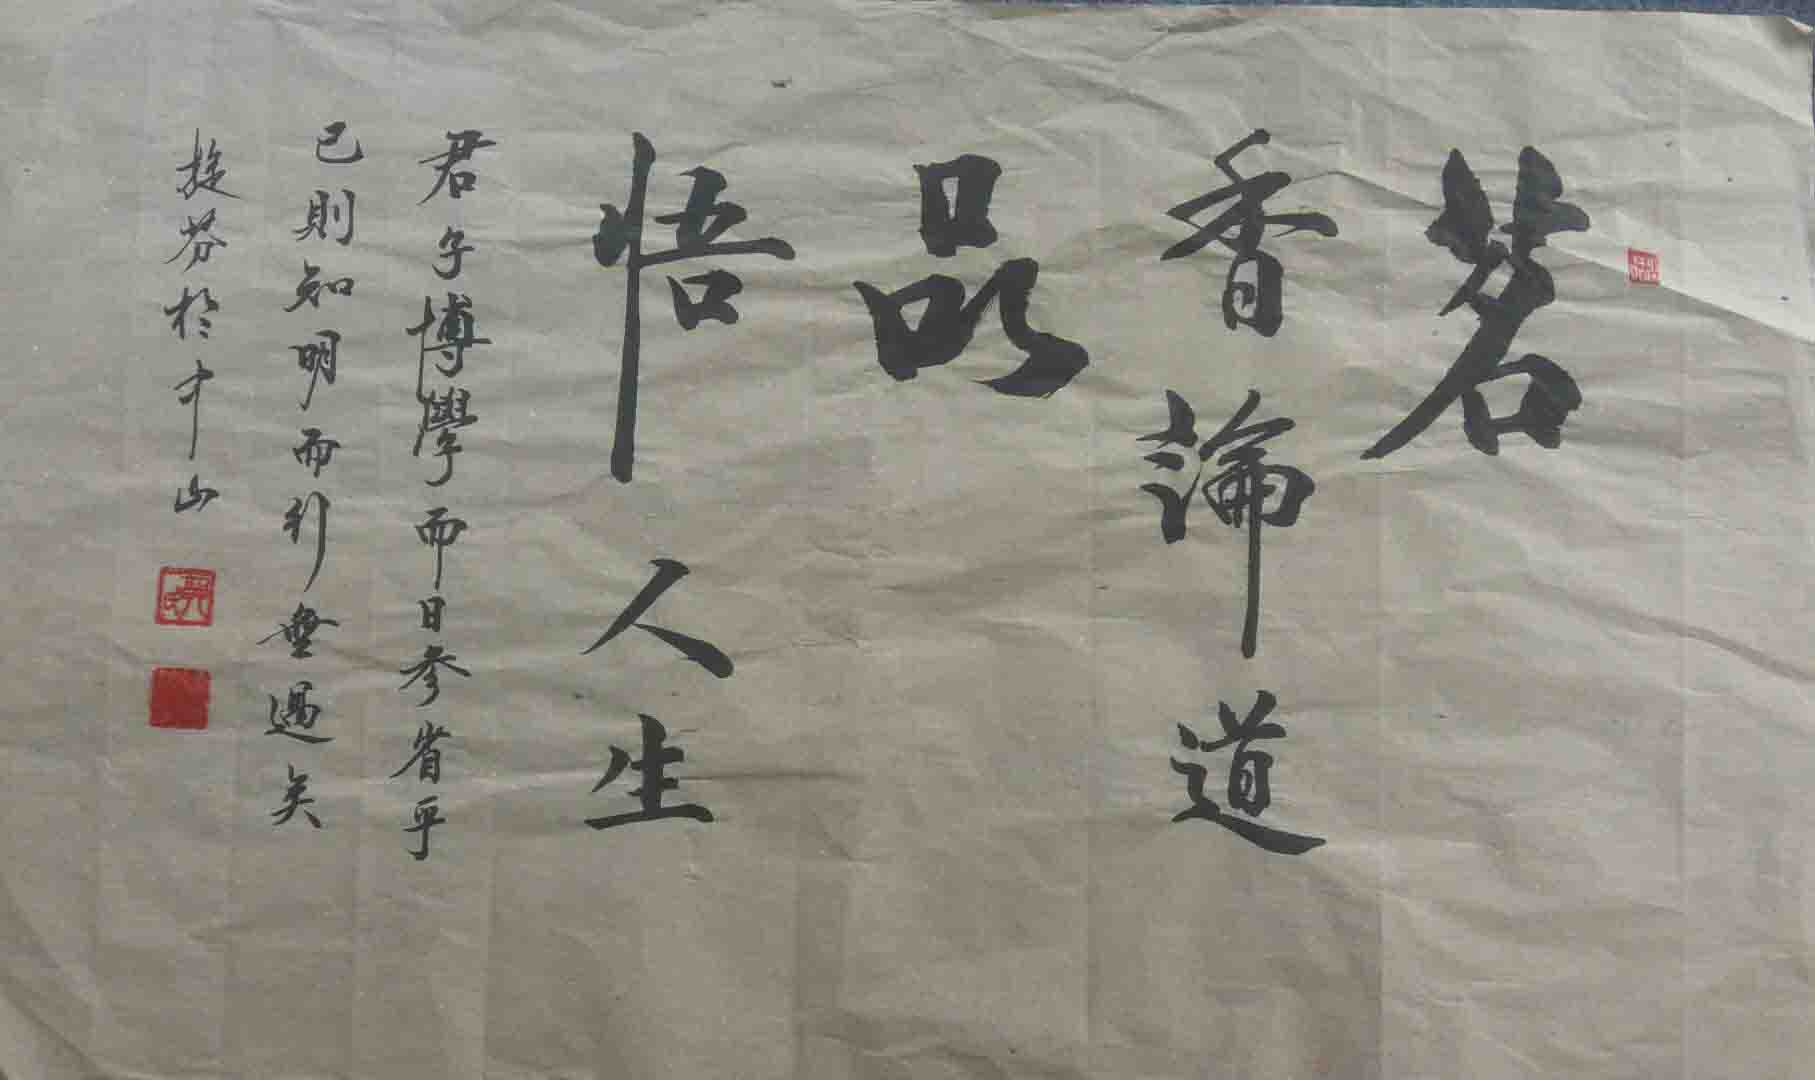 茗
香論道
品
悟人生
君子博學而日參省乎
己則知明而行無過矣
芬於中山